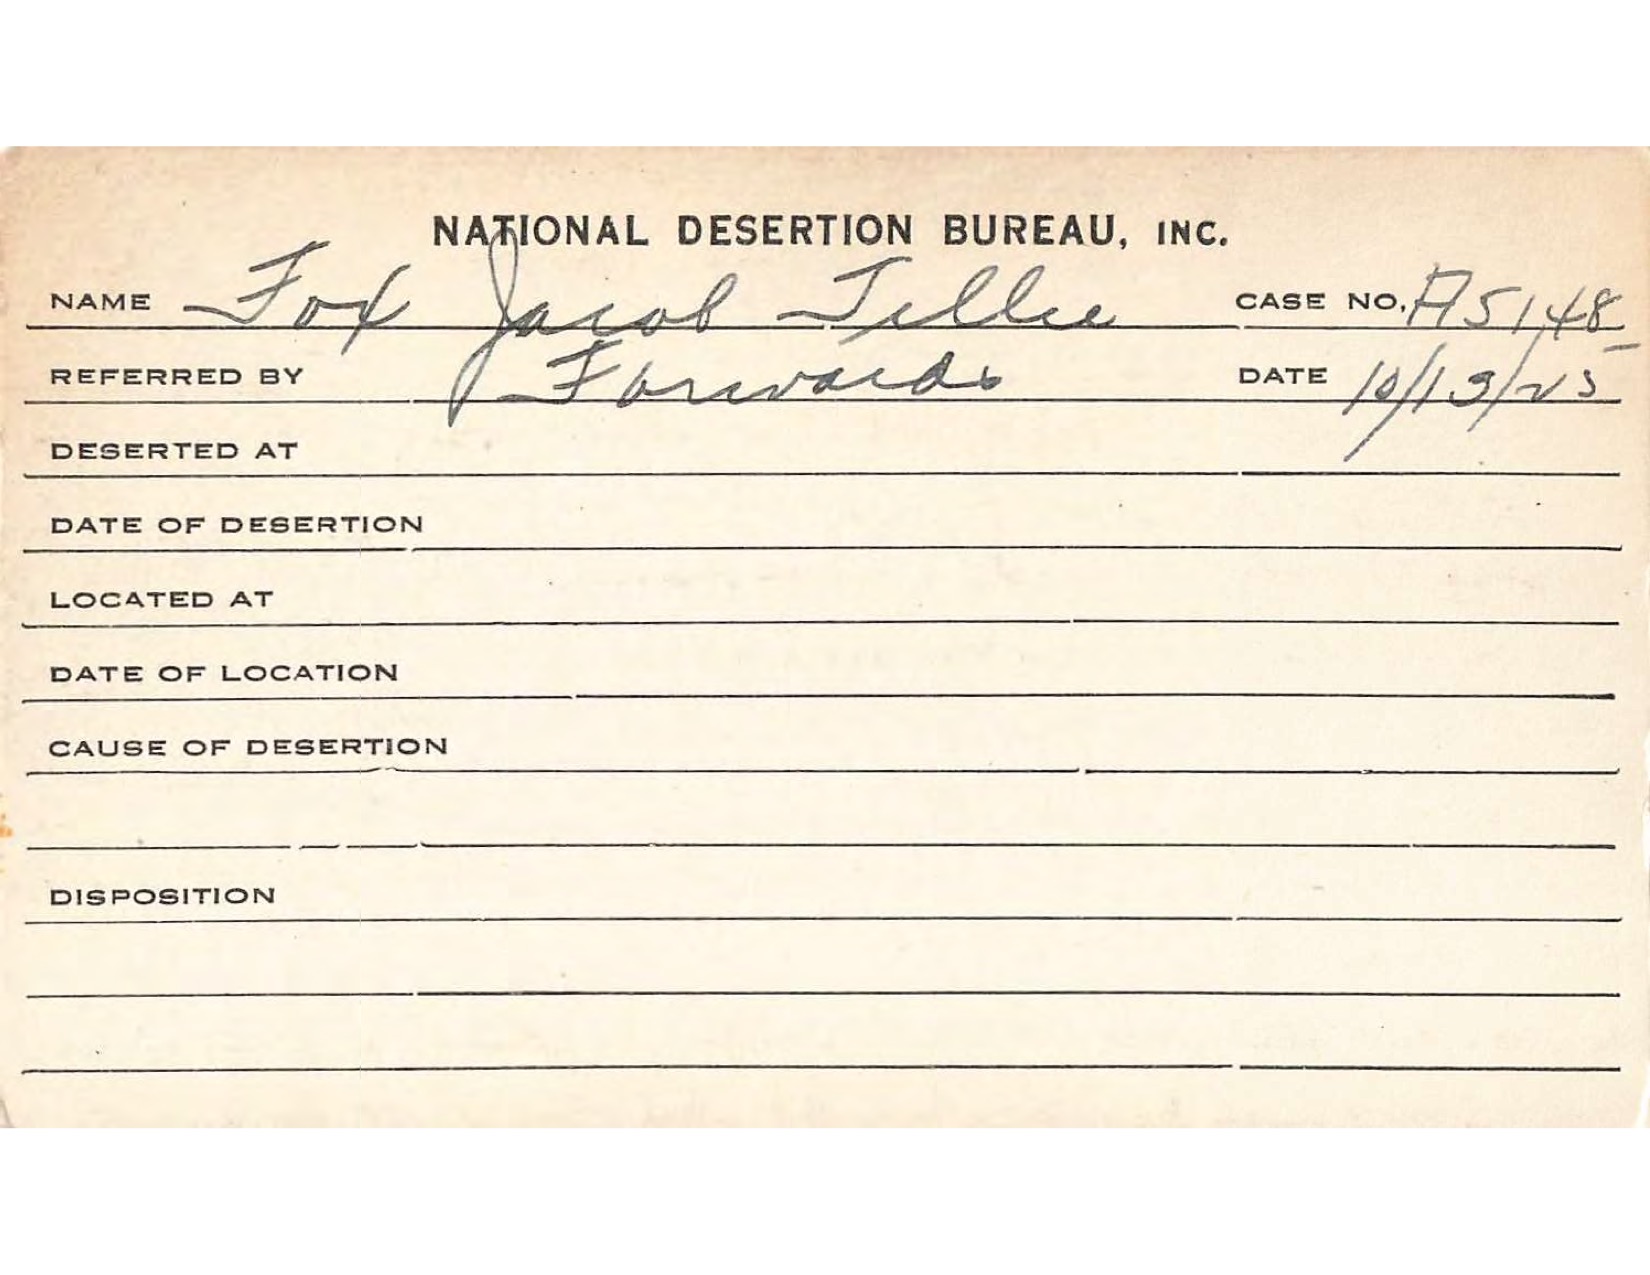 NATIONAL DESERTION BUREAU, INC.
NAME Fox Jacob Tillie CASE NO. A5148
REFERRED BY Forwards DATE 10/13/25
DESERTED AT
DATE OF DESERTION
LOCATED AT
DATE OF LOCATION
CAUSE OF DESERTION
DISPOSITION